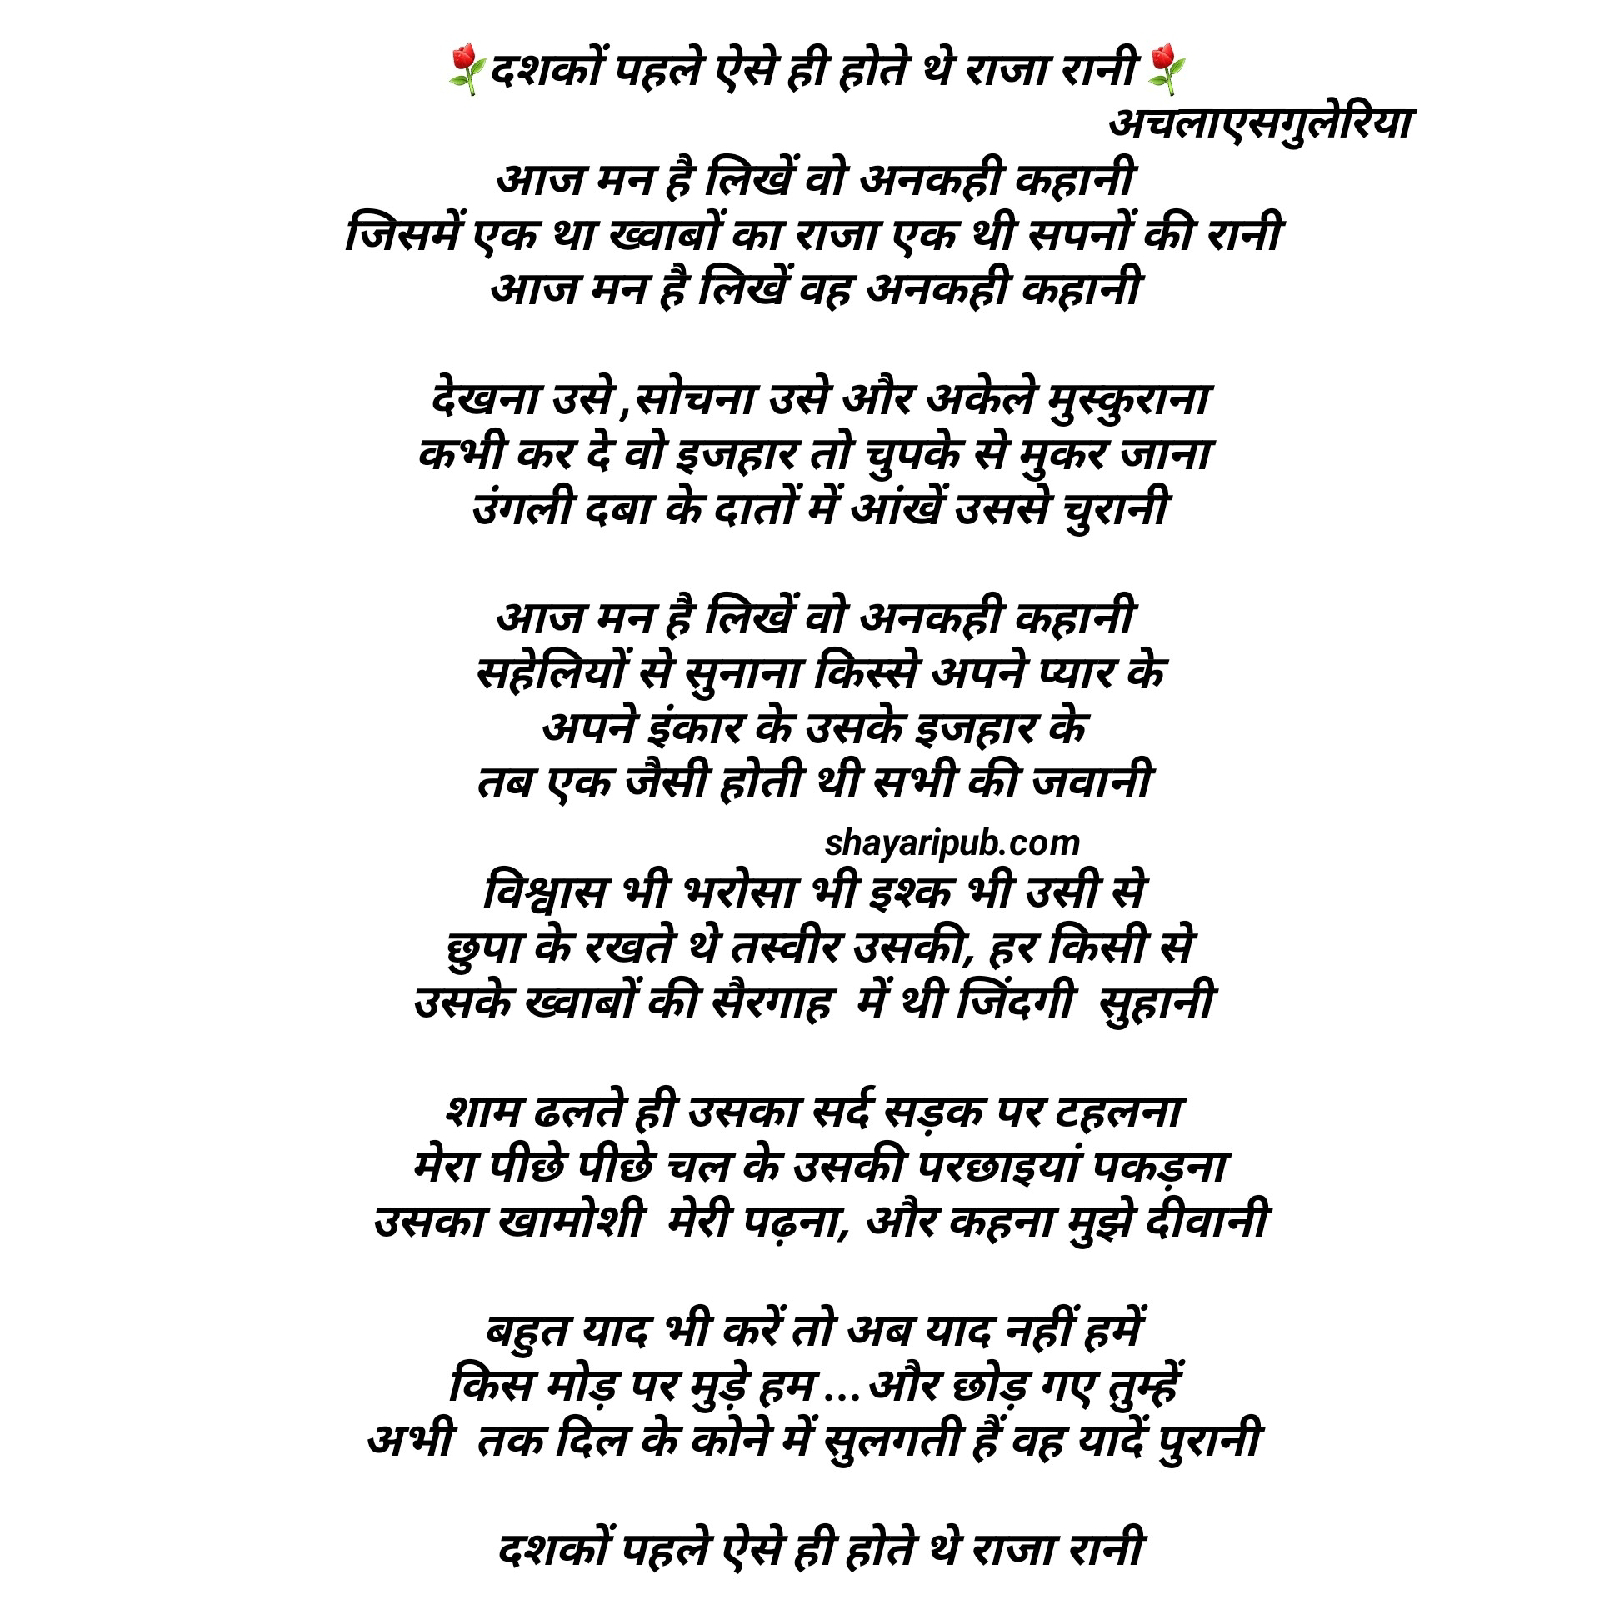 🌹दशकों पहले ऐसे ही होते थे राजा रानी🌹
अचलाएसगुलेरिया
आज मन है लिखें वो अनकही कहानी
जिसमें एक था ख्वाबों का राजा एक थी सपनों की रानी
आज मन है लिखें वह अनकही कहानी
देखना उसे ,सोचना उसे और अकेले मुस्कुराना
कभी कर दे वो इजहार तो चुपके से मुकर जाना
उंगली दबा के दातों में आंखें उससे चुरानी
आज मन है लिखें वो अनकही कहानी
सहेलियों से सुनाना किस्से अपने प्यार के
अपने इंकार के उसके इजहार के
तब एक जैसी होती थी सभी की जवानी
shayaripub.com
विश्वास भी भरोसा भी इश्क भी उसी से
छुपा के रखते थे तस्वीर उसकी, हर किसी से
उसके ख्वाबों की सैरगाह  में थी जिंदगी  सुहानी
शाम ढलते ही उसका सर्द सड़क पर टहलना
मेरा पीछे पीछे चल के उसकी परछाइयां पकड़ना
उसका खामोशी  मेरी पढ़ना, और कहना मुझे दीवानी
बहुत याद भी करें तो अब याद नहीं हमें
किस मोड़ पर मुड़े हम ...और छोड़ गए तुम्हें
अभी  तक दिल के कोने में सुलगती हैं वह यादें पुरानी
दशकों पहले ऐसे ही होते थे राजा रानी